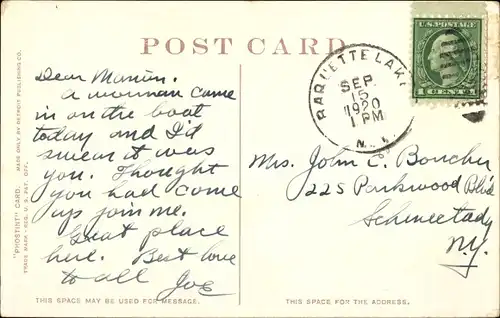 POST CARD
U.S. POSTAGE
1 CENT 1
RAQUETTE LAKE
SEP
15
1920
1 PM
N.Y.
Dear Marion.
A woman came
in on the boat
today and I'd
swear it was
you. Thought
you had come
up join me.
Great place
here. Best love
to all Joe
Mrs. John C. Boucher
225 Parkwood Blvd
Schenectady
N.Y.
"PHOSTINT" CARD. MADE ONLY BY DETROIT PUBLISHING CO.
TRADE MARK-REG. U.S. PAT. OFF.
THIS SPACE MAY BE USED FOR MESSAGE.
THIS SPACE IS FOR THE ADDRESS.